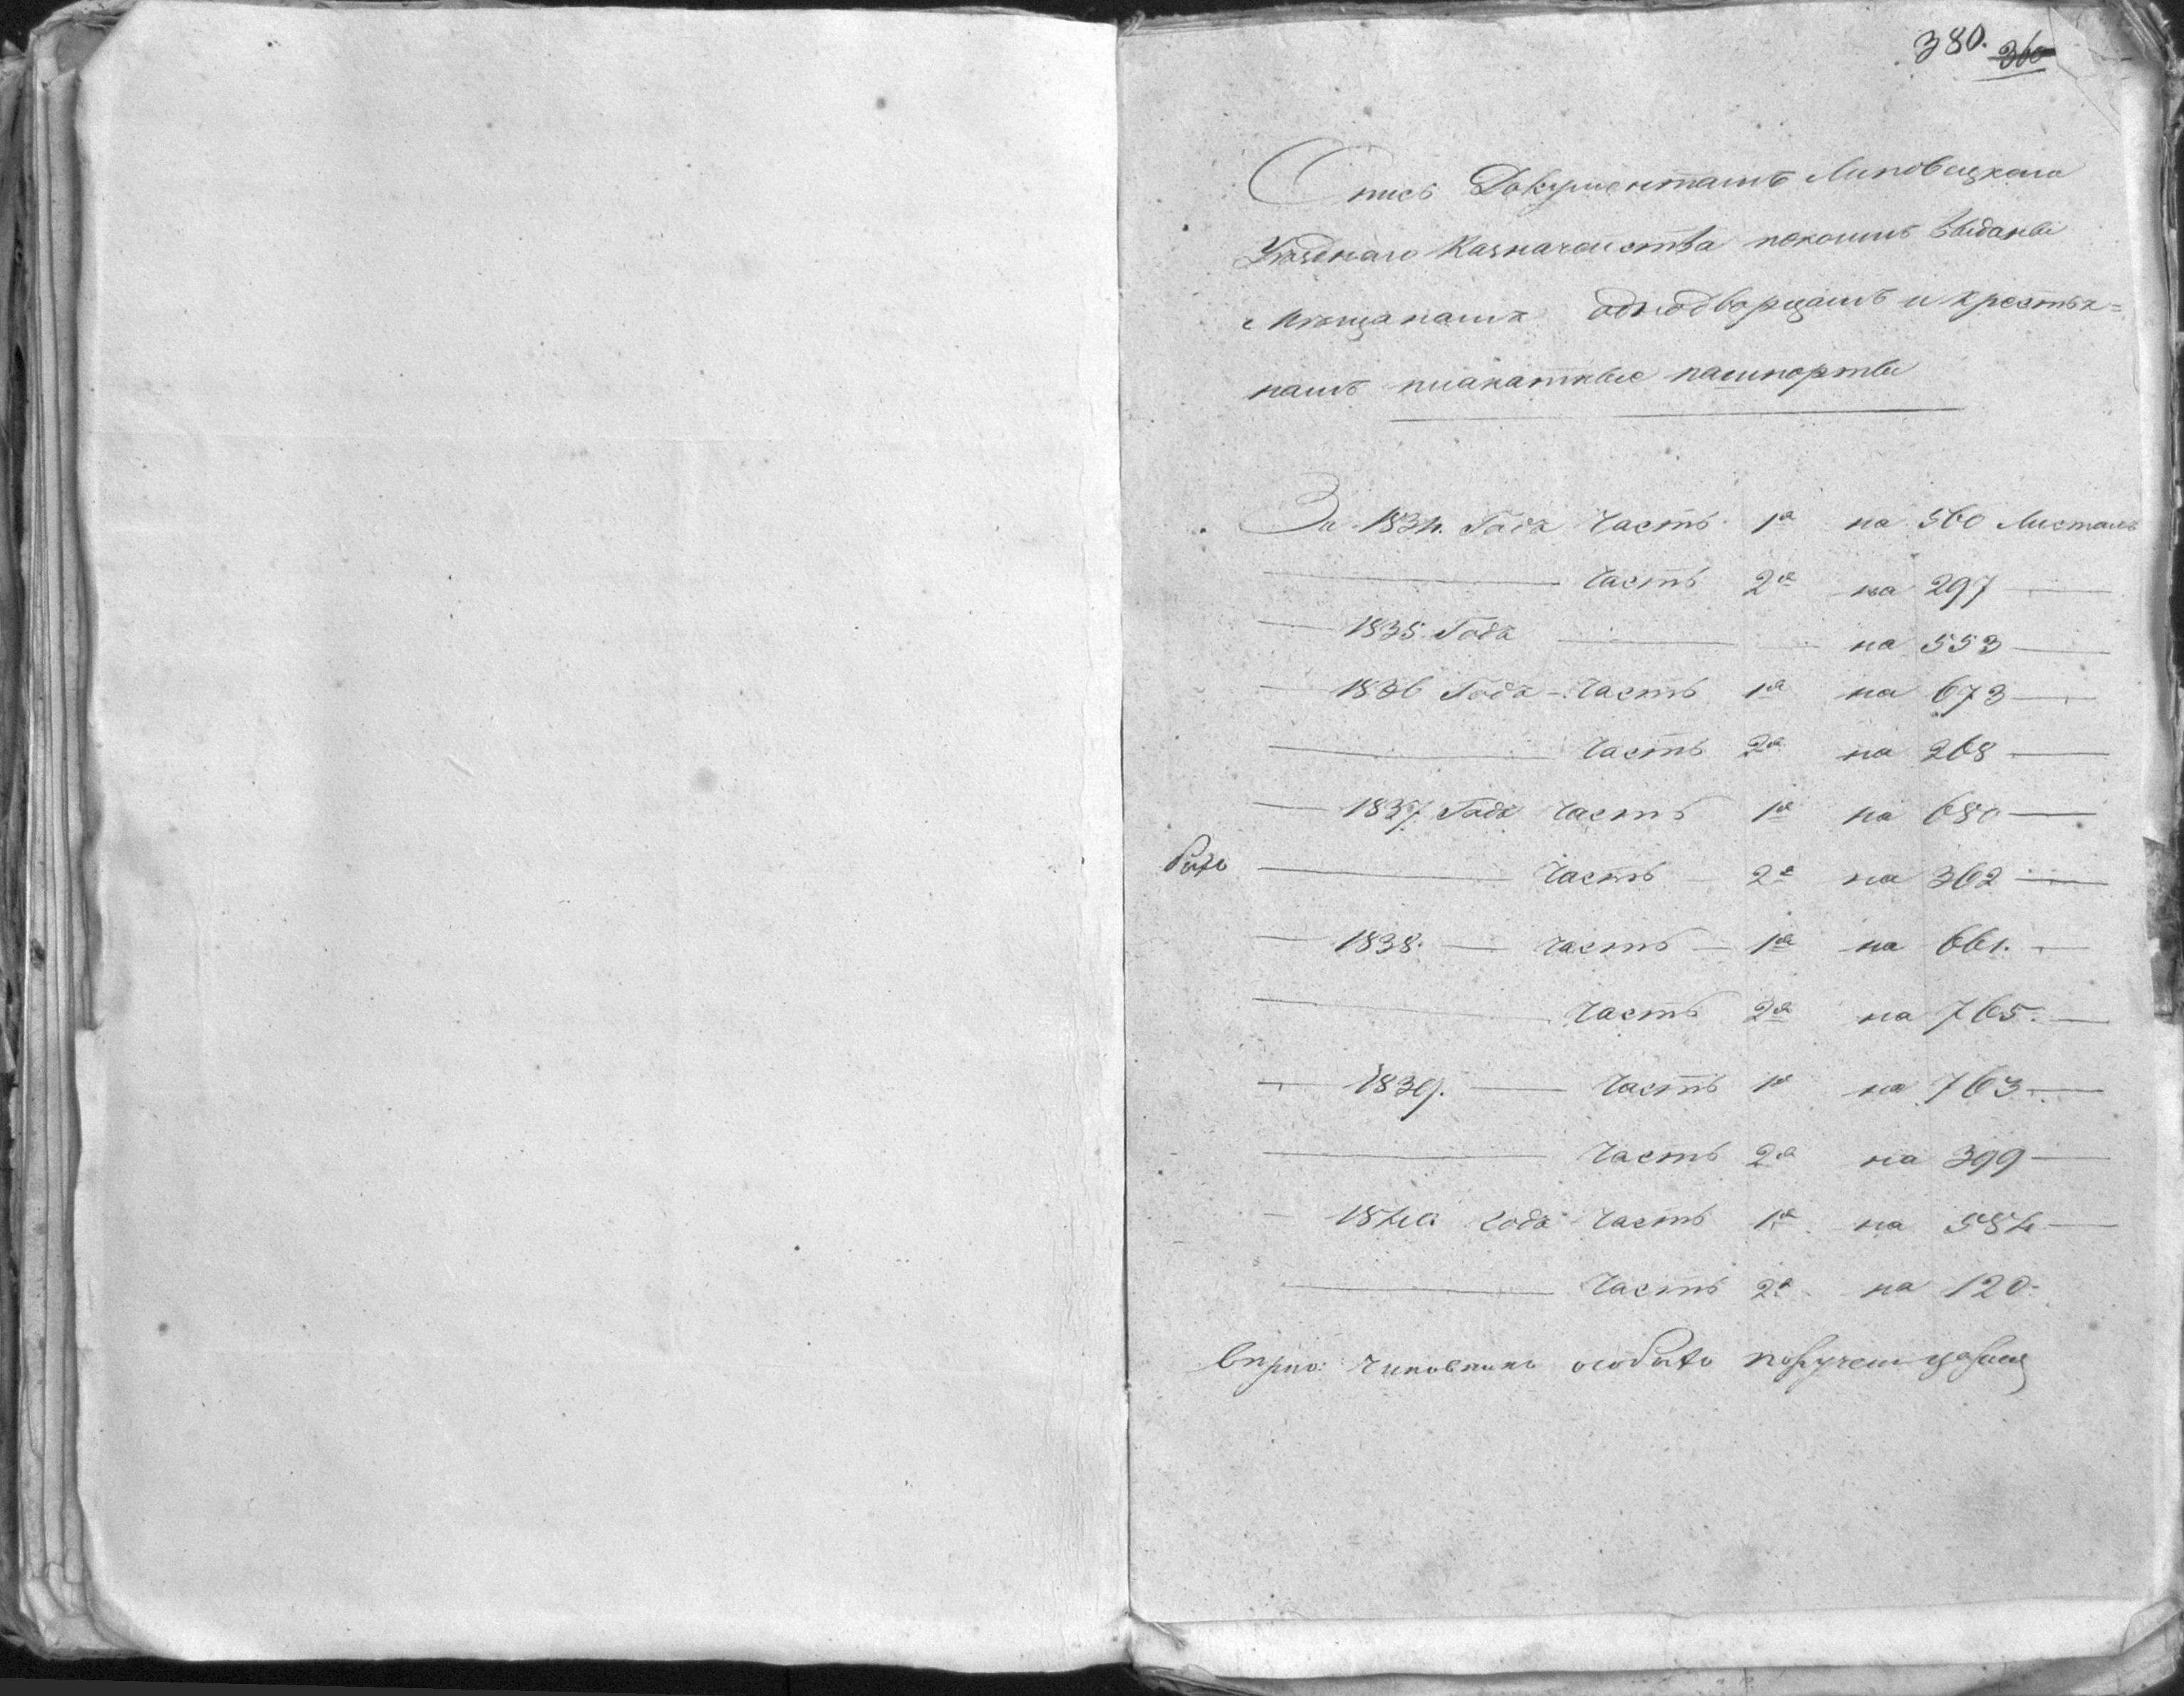 380. 360
Опись Документамъ Липовецкаго
Уѣзднаго Казначейства покоимъ выданы
мѣщанамъ однодворцамъ и крестья=
намъ плакатные пашпорты
За 1834. Годъ Часть 1я на 560 Листахъ
— Часть 2я на 297 —
— 1835. Годъ — на 553 —
— 1836 Годъ - Часть 1я на 673 —
— Часть 2я на 268 —
— 1837. Годъ Часть 1я на 680 —
— Часть 2я на 362 —
— 1838. — Часть — 1я на 661. —
— Часть 2я на 765. —
— 1839. — Часть 1я на 763 —
— Часть 2я на 399 —
— 1840 года Часть 1я на 584 —
— Часть 2я на 120.
Вѣрно: Чиновникъ особыхъ